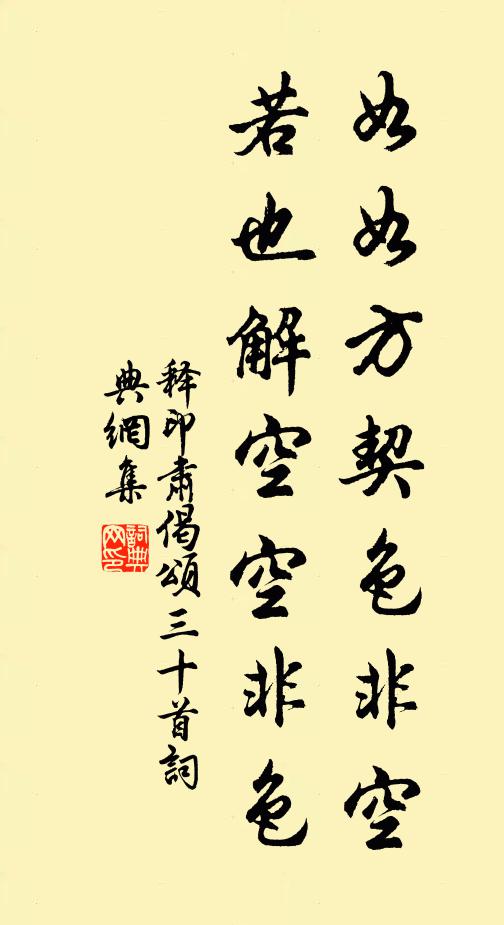 如如方契色非空
若也解空空非色
释印肅偈頌三十首詞
典網集
詞典
网印